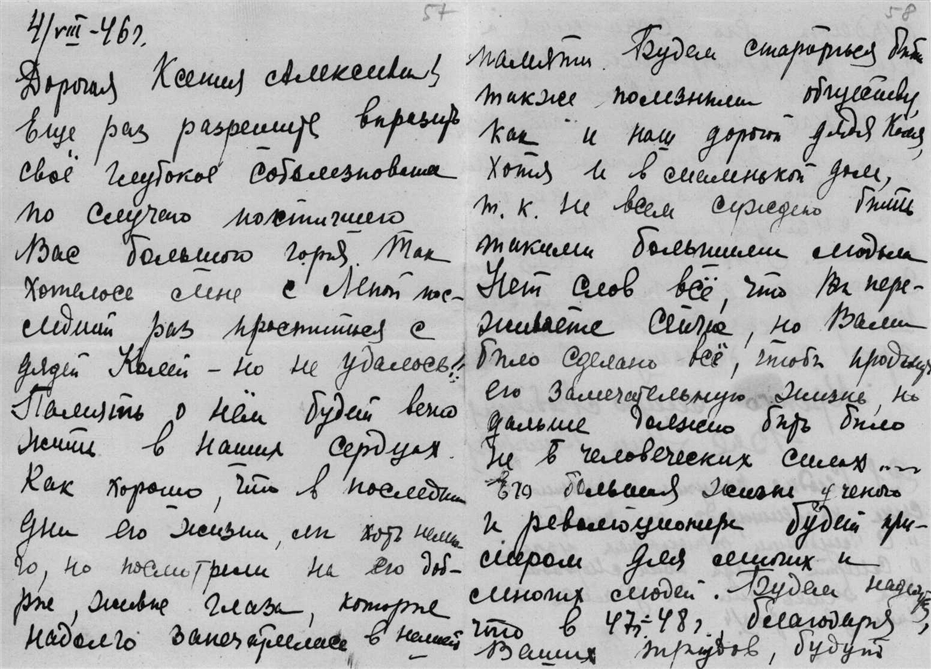 57
4/VIII-46г.
Дорогая Ксения Алексеевна!
Еще раз разрешите выразить
своё глубокое соболезнование
по случаю постигшего
Вас большого горя. Так
хотелось мне с Леной пос-
ледний раз проститься с
дядей Колей – но не удалось!!
Память о нём будет вечно
жить в наших сердцах.
Как хорошо, что в последние
дни его жизни, мы хоть немно-
го, но посмотрели на его доб-
рые, живые глаза, которые
надолго запечатлелись в нашей
58
памяти. Будем стараться быть
также полезными обществу,
как и наш дорогой дядя Коля,
хотя и в маленькой доле,
т.к. не всем суждено быть
такими большими людьми
Нет слов всё, что Вы пере-
живаете сейчас, но Вами
было сделано всё, чтобы продлить
его замечательную жизнь, но
дальше должно быть было
не в человеческих силах...
Его большая жизнь ученого
и революционера будет при-
мером для многих и
многих людей. Будем надеяться,
что в 47г.-48г. благодаря
Ваших трудов, будут